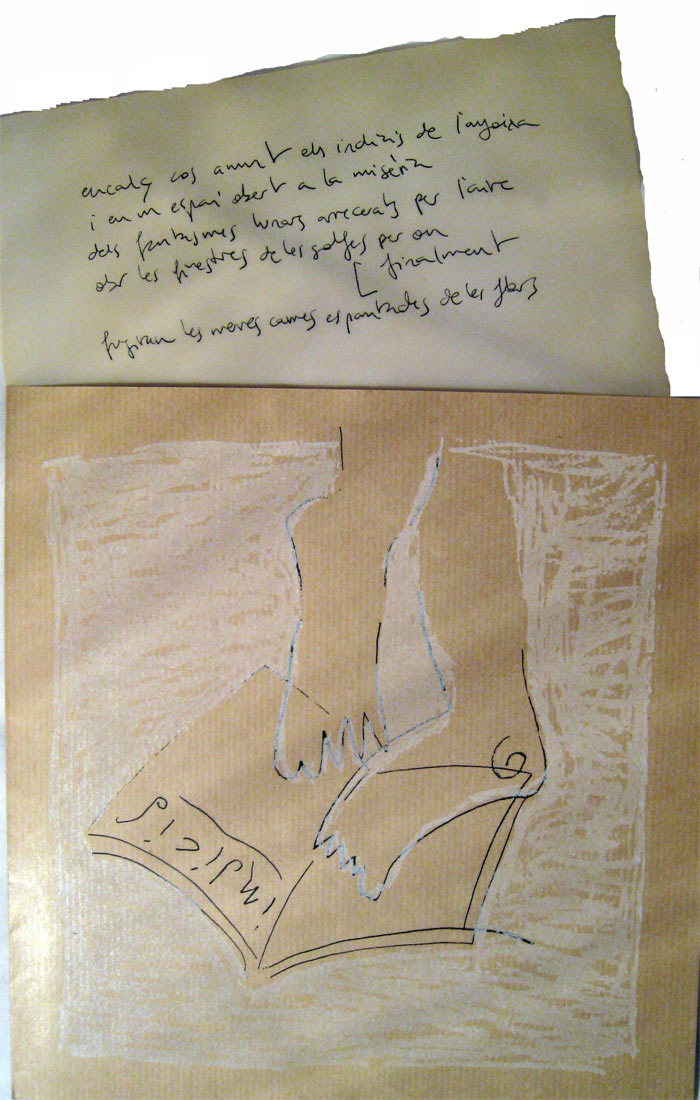 encalç cos amunt els indicis de l'angoixa
i en un espai obert a la misèria
dels fantasmes lunars arrecerats per l'aire
obr les finestres de les golfes per on
finalment
fugiran les meves cames espantades de les flors
indicis